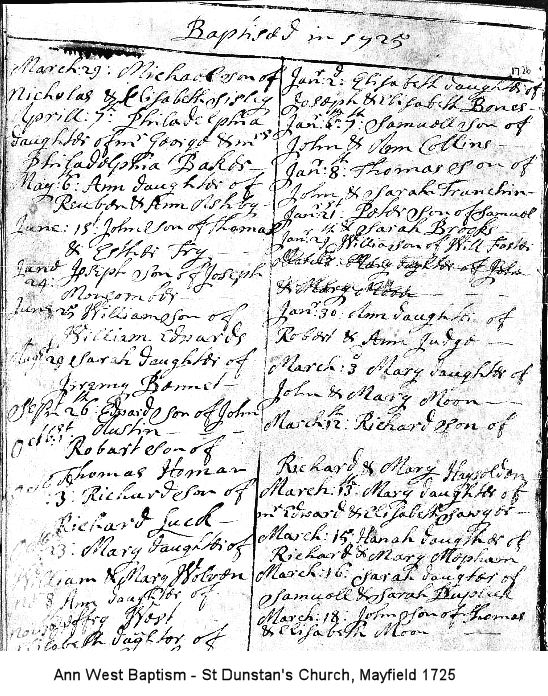 Baptised in 1725
March: 29: Michael son of
Nicholas & Elisabeth
Aprill: 7: Philadelphia
daughter of mr George & mrs
Philadelphia Baker
May: 6: Ann daughter of
Reuben & Ann Ashby
June: 15: John son of Thomas
& Esther Fry
June
24: Joseph son of Joseph
June: 25 William son of
William Edwards
29 Sarah daughter of
Jeremy Bonnet
Sept 26: Edward son of John
Austin
Octob: 1st
Robart son of
Thomas Homan
3: Richard son of
Richard Luck
23: Mary daughter of
William & Mary
8 Ann daughter of
West
Elisabeth daughter of
1726
Janr: 2: Elisabeth daughter of
Joseph & Elisabeth Bones
Janr: 7: Samuell son of
John & Ann Collins
Janr: 8: Thomas son of
John & Sarah
Janr: 21: Peter son of Samuel
& Sarah Brooks
Janr: William son of Will Foster
Mary daughter of John
& Mary Moon
Janr: 30: Ann daughter of
Robert & Ann Judge
March: 3 Mary daughter of
John & Mary Moon
March: 12: Richard son of
Richard & Mary
March: 13: Mary daughter of
mr Edward & Elisabeth Sawyer
March: 15 Hanah daughter of
Richard & Mary Mepham
March: 16: Sarah daugter of
Samuell & Sarah
March: 18: John son of Thomas
& Elisabeth Moon
Ann West Baptism - St Dunstan's Church, Mayfield 1725